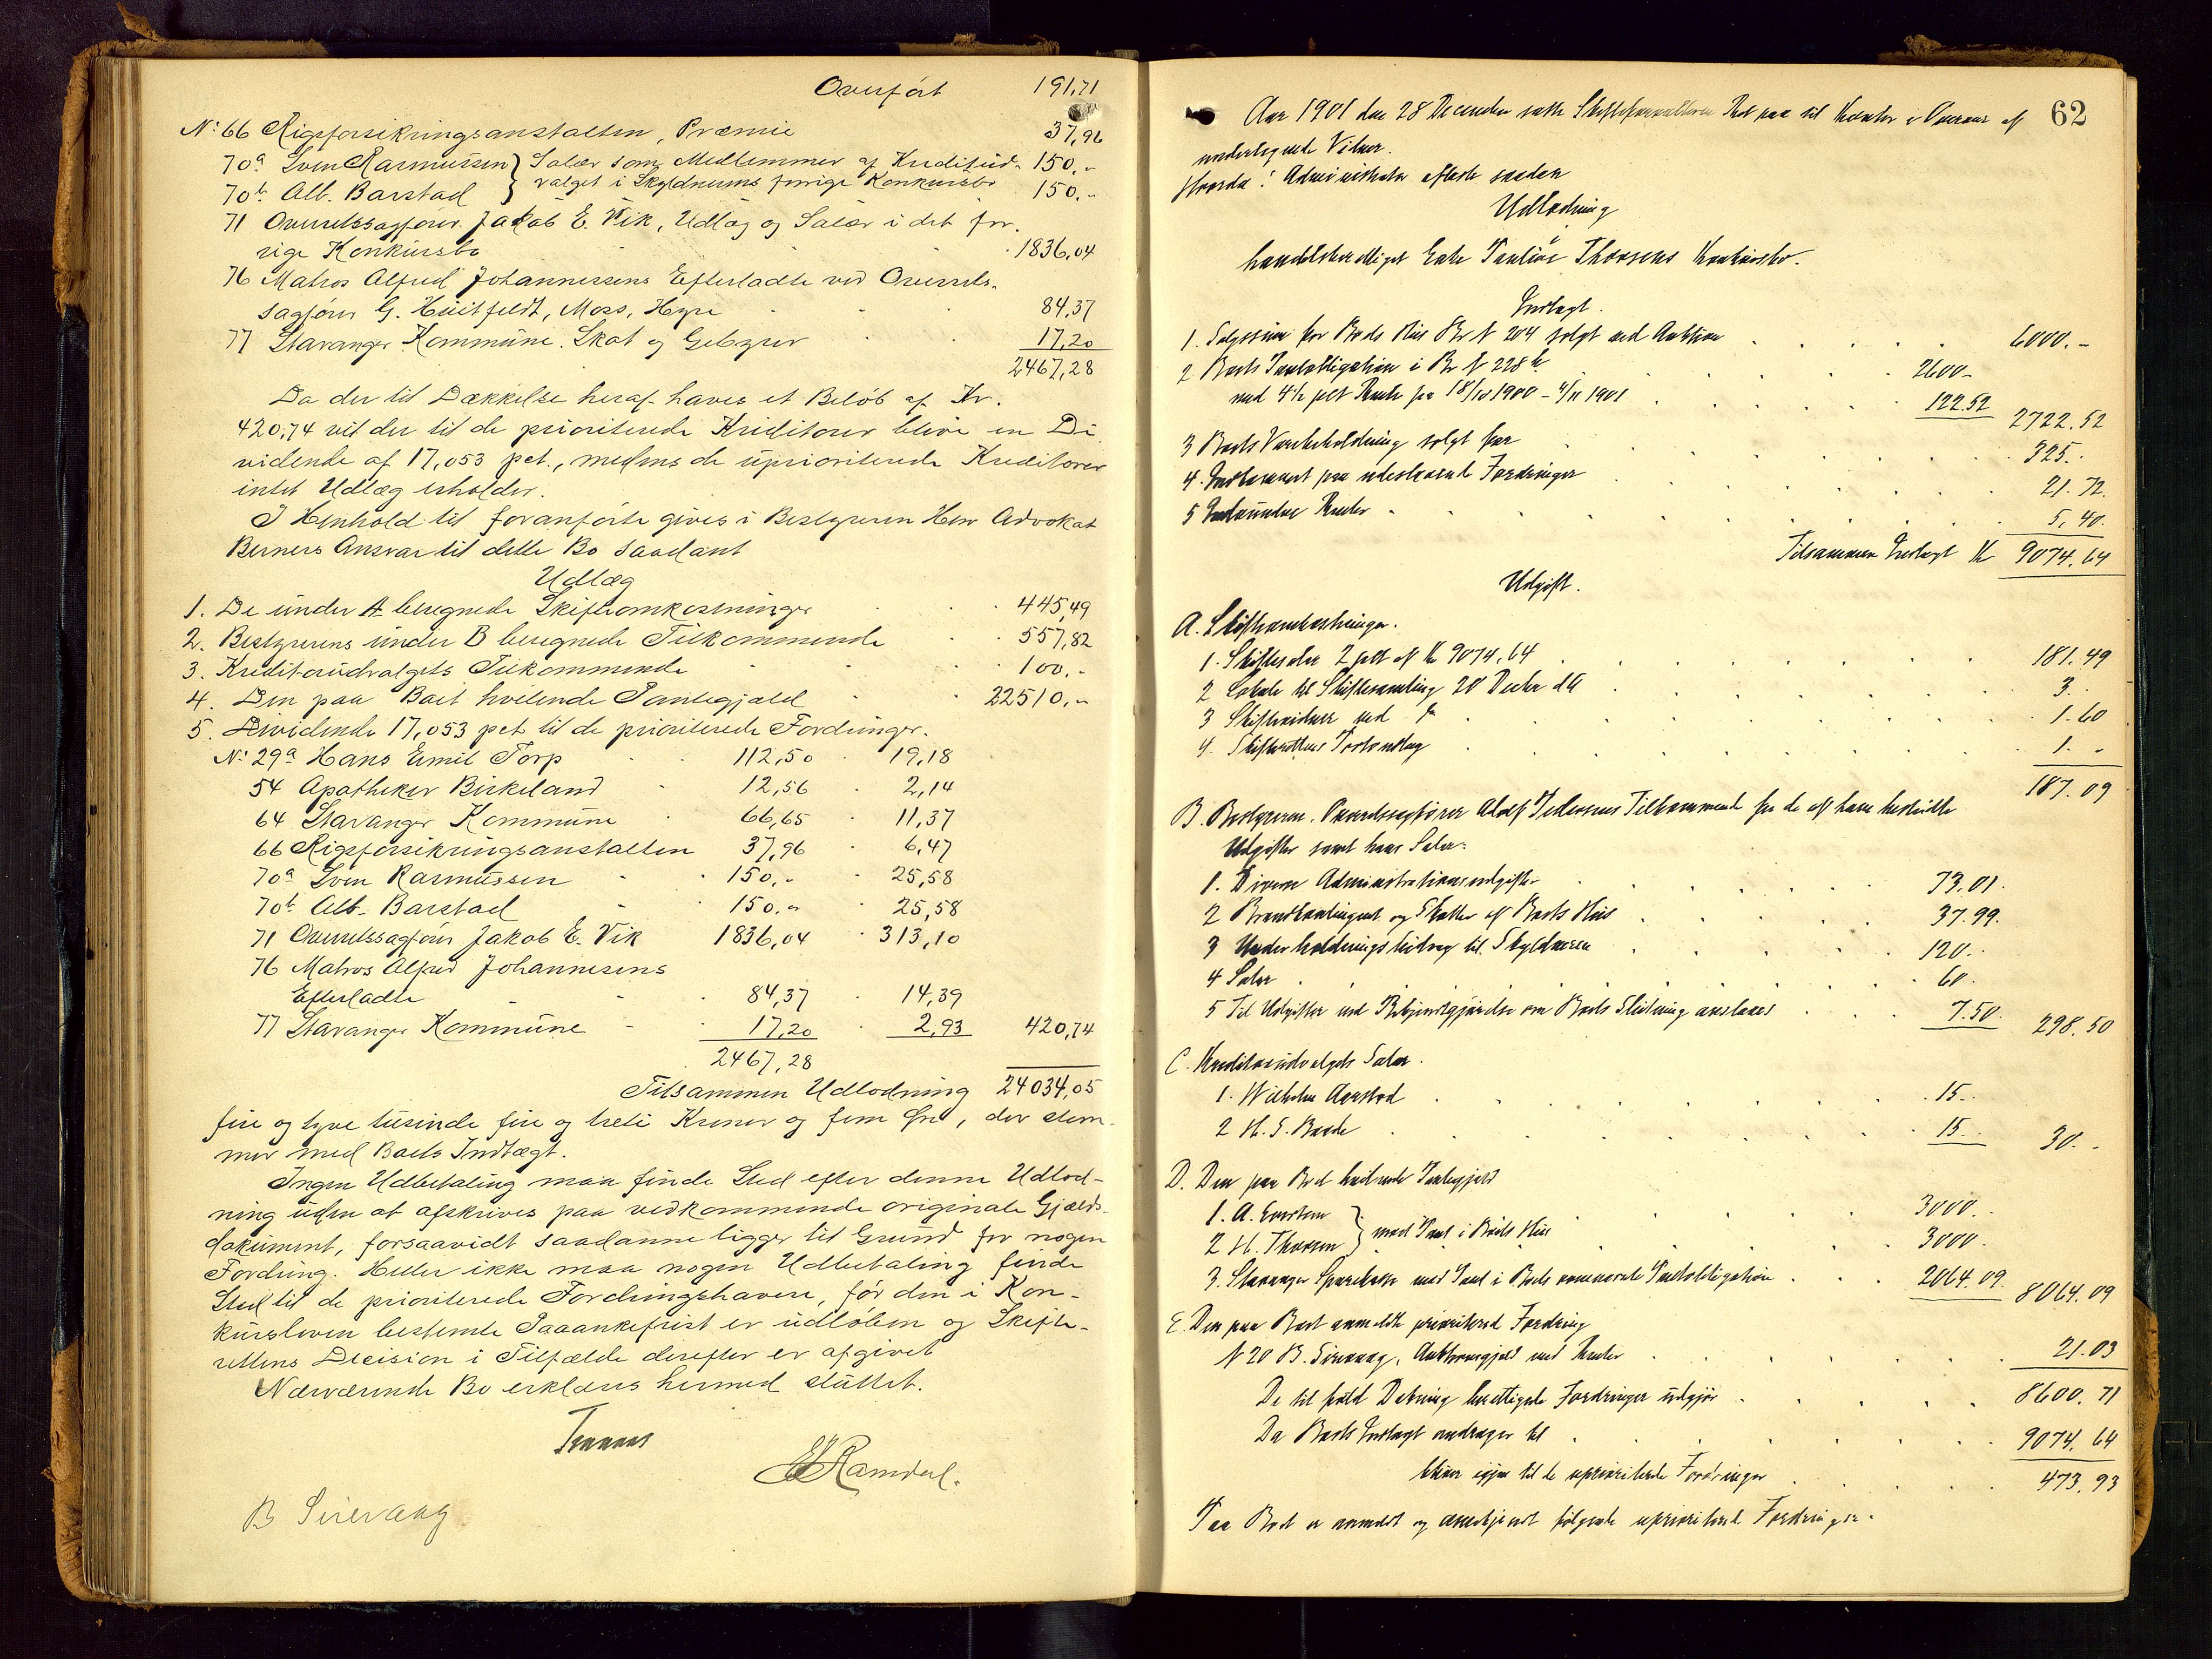 Overført 191,71
No 66 Rigsforsikringsanstalten, Præmie 37,96
70a Sven Rasmussen } Salær som Medlemmer af Kreditud- 150,-
70b Alb. Barstad } valget i Skyldnerens forrige Konkursbo 150,-
71 Overretssagfører Jakob E. Vik, Udlæg og Salær i det for-
rige Konkursbo 1836,04
76 Matros Alfred Johannessens Efterladte ved Overrets-
sagfører G. Huitfeldt, Moss, Hyre 84,37
77 Stavanger Kommune. Skat og Gebyrer 17,20
2467,28
Da der til Dækkelse heraf haves et Beløb af Kr.
420,74 vil der til de prioriterede Kreditorer blive en Di-
vidende af 17,053 pct., medens de uprioriterede Kreditorer
intet Udlæg erholder.
I Henhold til foranførte gives i Bestyreren Herr Advokat
Berners Ansvar til dette Bo saadant
Udlæg
1. De under A beregnede Skifteomkostninger 445,49
2. Bestyrerens under B beregnede Tilkommende 557,82
3. Kreditorudvalgets Tilkommende 100,-
4. Den paa Boet hvilende Pantegjæld 22510,-
5. Dividende 17,053 pct til de prioriterede Fordringer.
No 29a Hans Emil Torp 112,50 19,18
54 Apotheker Birkeland 12,56 2,14
64 Stavanger Kommune 66,65 11,37
66 Rigsforsikringsanstalten 37,96 6,47
70a Sven Rasmussen 150,- 25,58
70b Alb. Barstad 150,- 25,58
71 Overretssagfører Jakob E. Vik 1836,04 313,10
76 Matros Alfred Johannesens
Efterladte 84,37 14,39
77 Stavanger Kommune 17,20 2,93 420,74
2467,28
Tilsammen Udlodning 24034,05
fire og tyve tusinde fire og treti Kroner og fem Øre, der stem-
mer med Boets Indtægt.
Ingen Udbetaling maa finde Sted efter denne Udlod-
ning uden at afskrives paa vedkommende originale Gjælds-
dokument, forsaavidt saadanne ligger til Grund for nogen
Fordring. Heller ikke maa nogen Udbetaling finde
Sted til de prioriterede Fordringshavere, før den i Kon-
kursloven bestemte Paaankefrist er udløben og Skifte-
rettens Decision i Tilfælde derefter er afgivet
Nærværende Bo erklæres hermed sluttet.
Ramdal.
B Sirevaag
62
Aar 1901 den 28 December satte Skifteforvalteren Ret paa sit Kontor i Overvær af
undertegnede Vidner.
Hvorda! Administrator afleste saadan
Udlodning
i
handelsberettiget Enke Pauline Thorsens Konkursbo.
Indtægt.
1. Salgssum for Boets Hus Br N 204 solgt ved Auktion 6000.-
2 Boets Pantobligation i Br N 228b 2600-
med 4½ pct Rente fra 18/10 1900 - 4/11 1901 122.52 2722.52
3 Boets Varebeholdning solgt for 325.-
4. Indkommet paa udestaaende Fordringer 21.72.
5 Indvundne Renter 5,40.
Tilsammen Indtægt Kr 9074.64
Udgift.
A. Skifteomkostninger.
1. Skiftesalær 2 pct af Kr 9074,64 181.49
2 Lokale til Skiftesamling 20 Decbr dA 3.-
3 Skiftevidner ved do 1.60
4. Skifterettens Portoudlæg 1.-
187.09
B. Bestyreren, Overretssagfører Adolf Pedersens Tilkommende for de af ham bestridte
Udgifter samt hans Salær:
1. Diverse Administrationsudgifter 73,01.
2 Brandkontingent og Skatter af Boets Hus 37.99.
3 Underholdningsbidrag til Skyldneren 120.-
4 Salær 60.-
5 Til Udgifter ved Bekjendtgjørelse om Boets Slutning anslaaes 7.50. 298.50
C. Kreditorudvalgets Salær.
1. Wilhelm Aarstad 15.-
2 H. S. Baade 15.- 30.-
D. Den paa Boet hvilende Pantegjæld
1. A. Evertsen } 3000.-
2 H. Thorsen } mod Pant i Boets Hus 3000.-
3. Stavanger Sparekasse mod Pant i Boets ovennævnte Pantobligation 2064.09. 8064.09
E. Den paa Boet anmeldte prioriterede Fordring
N 20 B. Sirevaag, Auktionsgjæld med Renter 21.03
De til fuld Dækning berettigede Fordringer udgjør 8600.71
Da Boets Indtægt andrager til 9074.64
bliver igjen til de uprioriterede Fordringer 473.93
Paa Boet er anmeldt og anerkjendt følgende uprioriterede Fordringer: